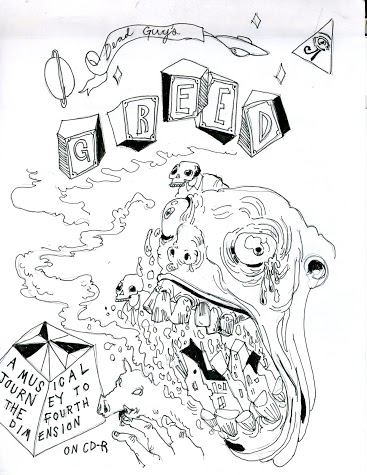 Dead Guy's
GREED
A MUSICAL
JOURNEY TO
THE FOURTH
DIMENSION
ON CD-R